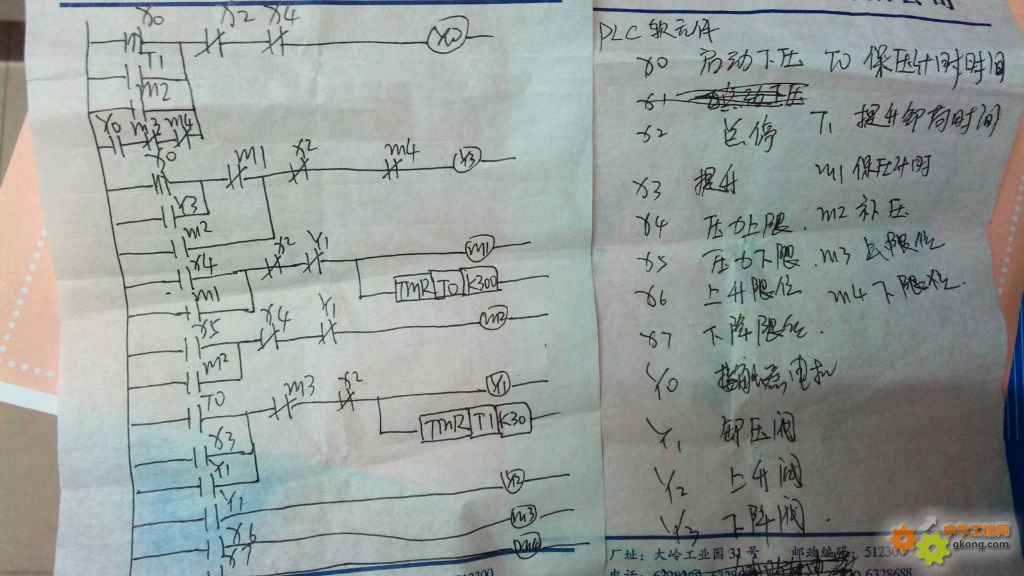 X0 X2 X4 Y0
T1
M2
Y0 M3 M4
X0 M1 X2 M4 Y3
Y3
M2
X4 X2 Y1 M1
M1 TMR T0 K300
X5 X4 Y1 M2
M2
T0 M3 X2 Y1
X3 TMR T1 K30
Y1
Y1 Y2
X6 M3
X7 M4
PLC 软元件
X0 启动下压 T0 保压计时时间
X2 总停 T1 提升卸荷时间
X3 提升 M1 保压计时
X4 压力上限. M2 补压
X5 压力下限. M3 上限位
X6 上升限位 M4 下限位.
X7 下降限位.
Y0 电机
Y1 卸压阀
Y2 上升阀
Y3 下降阀.
厂址:大岭工业园31号 邮政编码:512300
512300
6328688
中华工控网
gkong.com